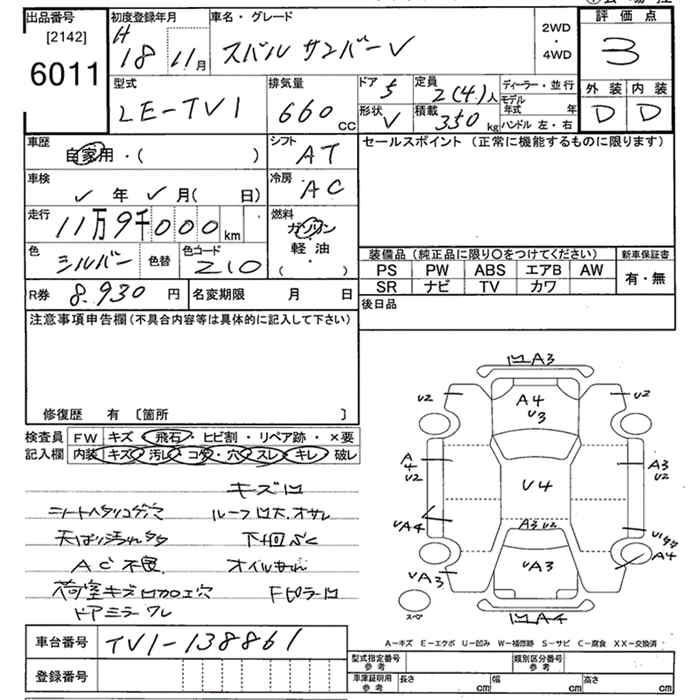 出品番号
[2142]
6011
初度登録年月
H
18 11月
車名・グレード
スバル サンバーV
2WD
・
4WD
評価点
3
外装 内装
D D
型式
LE-TV1
排気量
660
CC
ドア
5
形状
V
定員
2(4)人
積載
350kg
ディーラー・並行
モデル
年式 年
ハンドル 左・右
車歴
自家用・( )
シフト
AT
車検
年 月( 日)
冷房
AC
走行
11万9千000km
燃料
ガソリン
軽油
( ・ )
色
シルバー
色替
色コード
Z10
R券 8.930円
名変期限 月 日
セールスポイント (正常に機能するものに限ります)
装備品(純正品に限り〇をつけてください)
新車保証書
PS PW ABS エアB AW
有・無
SR ナビ TV カワ
後日品
注意事項申告欄(不具合内容等は具体的に記入して下さい)
修復歴 有 〔箇所 〕
検査員
記入欄
FW キズ・飛石・ヒビ割・リペア跡・×要
内装 キズ・汚レ・コゲ・穴・スレ・キレ・破レ
キズ凹
シートヘタリコゲ穴
ルーフ凹大.オサレ
天はり汚れタタ
下回
AC不良
オイル
荷室キズ凹カロエ穴
Fピラー凹
ドアミラーワレ
凹A3
U2
U2
A4
U3
A
4
U2
A3
U2
U4
UA4
A3 U2
UA3
UA3
A4
凹A4
スペア
A−キズ E−エクボ U−凹み W−補修跡 S−サビ C−腐食 XX−交換済
車台番号
TV1-138861
登録番号
型式指定番号
参考
類別区分番号
参考
車庫証明用
参考
長さ cm
幅 cm
高さ cm